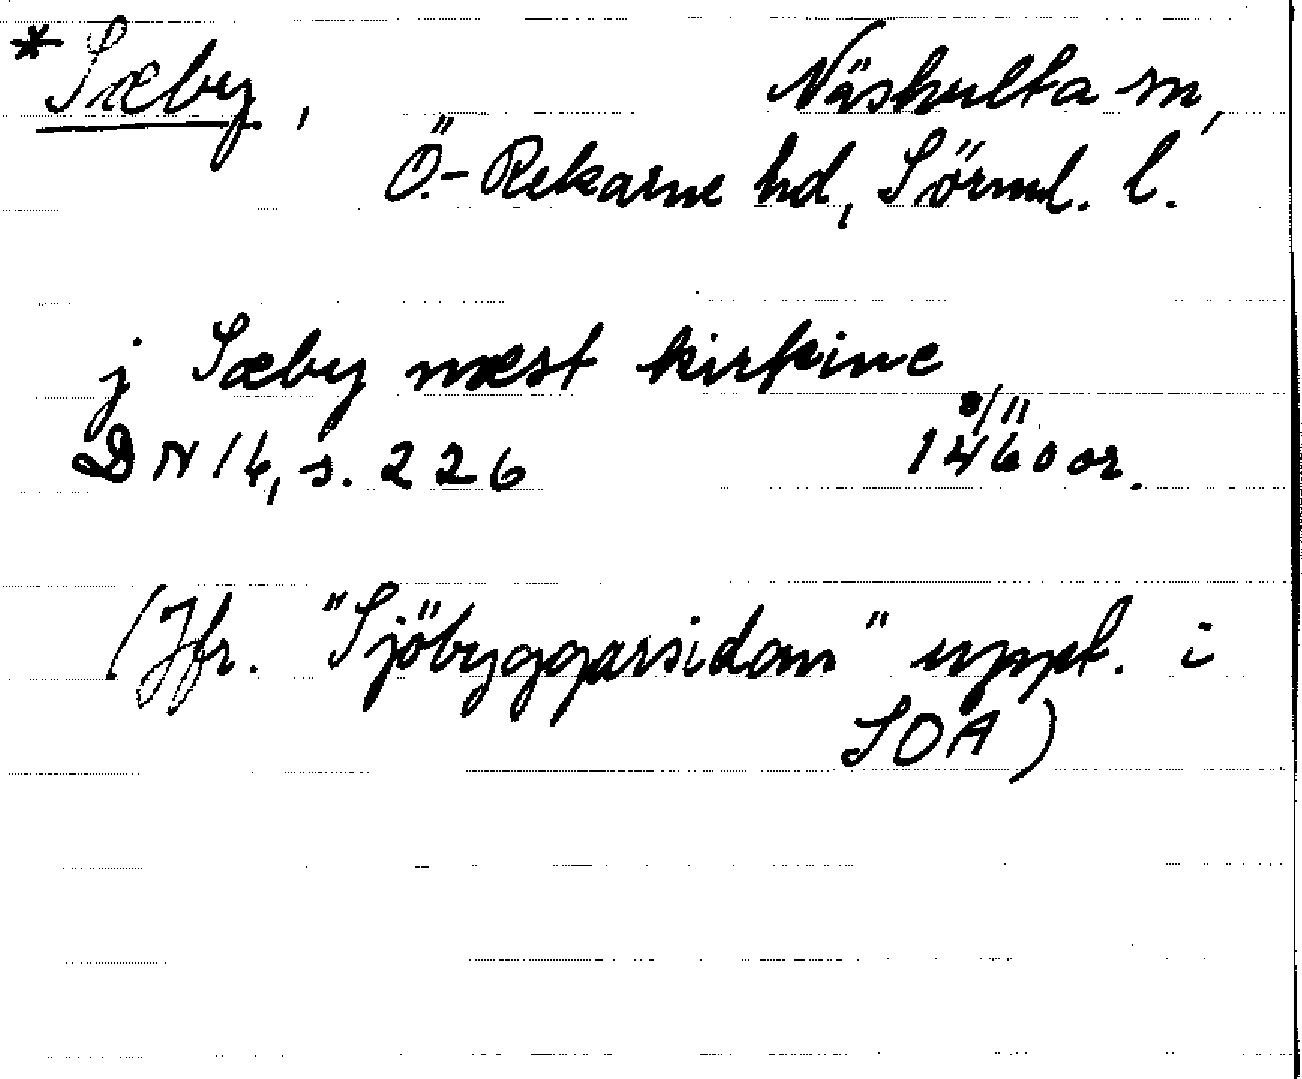 *Sæby, Näshulta sn,
Ö.-Rekarne hd, Sörml. l.
j Sæby næst kirkine
DN 16, s. 226 8/11 1460 or.
(Jfr. "Sjöbyggarsidan" uppt. i
SOA)